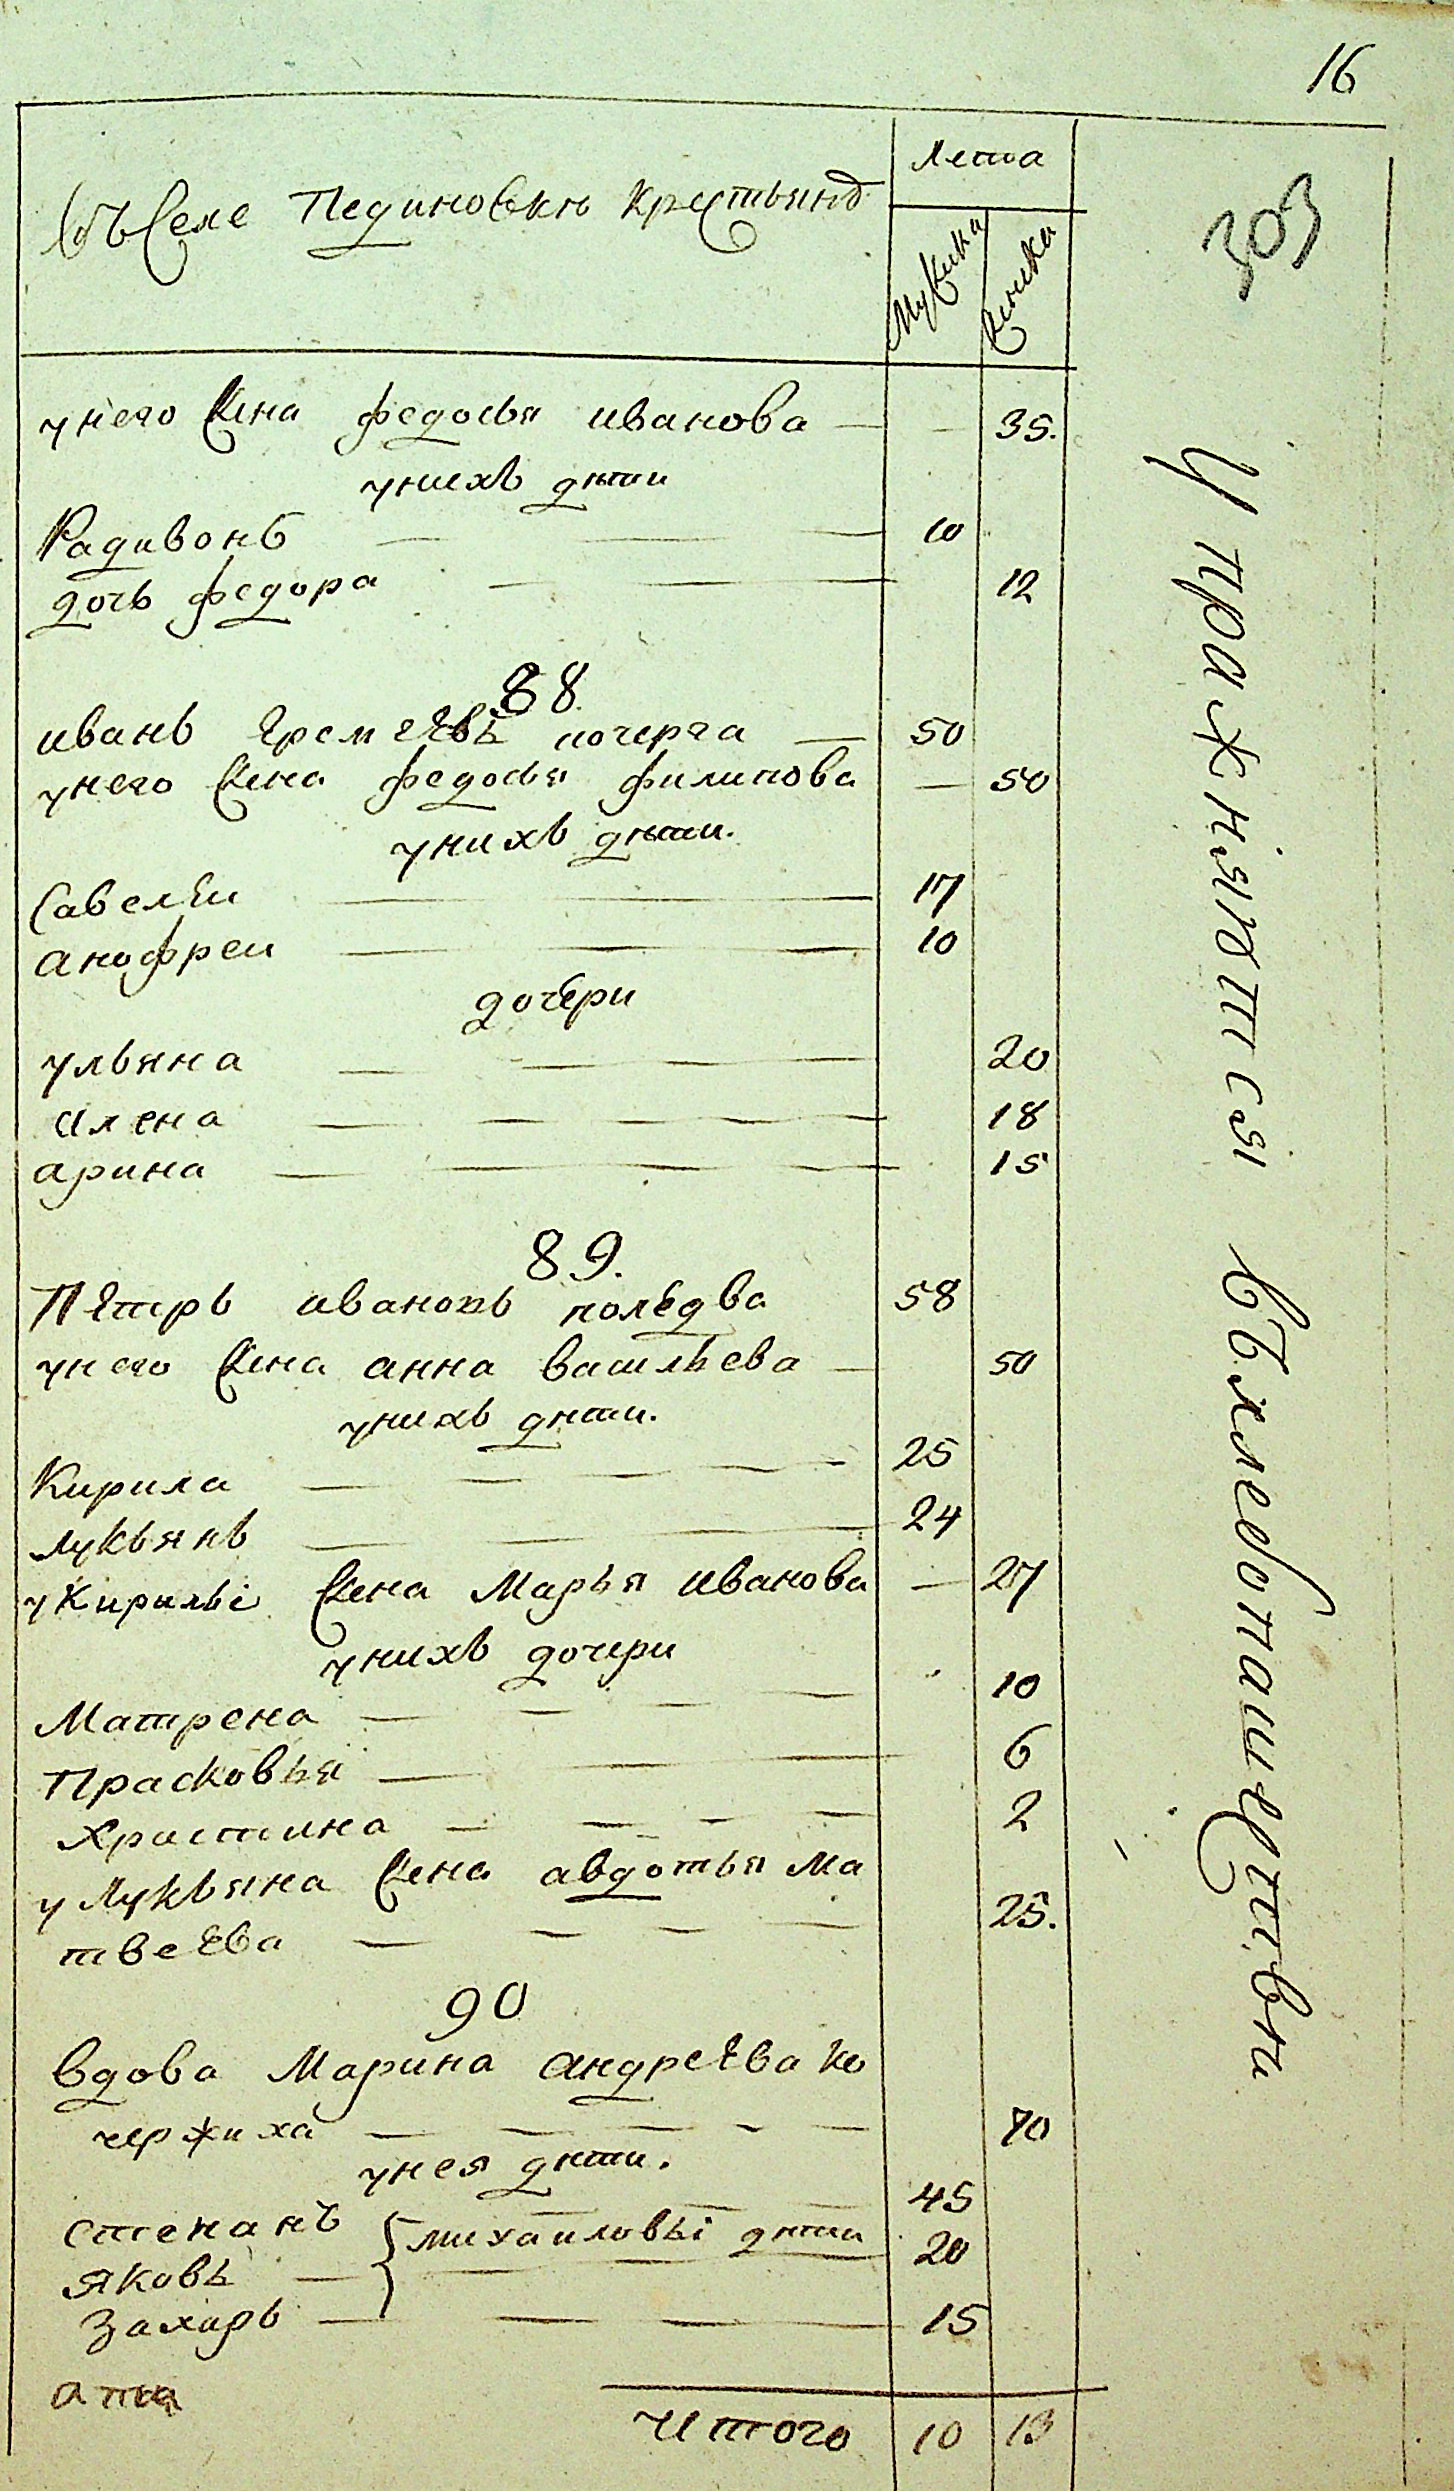 16
303
въ Селе Пединовкѣ крестьянъ
Лета
Мужика
Женика
у него жена федосья иванова 35.
у нихъ дѣти
Радивонъ 10
дочь федора 12
88.
иванъ Еремеевъ кочерга 50
у него жена федосья филипова 50
у нихъ дѣти.
Савелеи 17
анофреи 10
дочери
ульяна 20
алена 18
арина 15
89.
Петръ ивановъ поледва 58
у него жена анна васильева 50
у нихъ дѣти.
Кирила 25
лукьянъ 24
у Кирилы жена Марья иванова 27
у нихъ дочери
Матрена 10
Прасковья 6
Христина 2
у Лукьяна жена авдотья Ма
твеева 25.
90
вдова Марина андреева ко
чержиха 70
у нея дѣти.
степанъ 45
михаиловы дѣти
яковъ 20
Захаръ 15
Итого 10 13
Упражніяются въ хлебопашествѣ